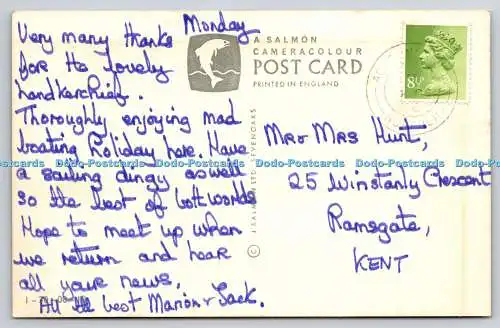 Monday
Very many thanks
fore the lovely
handkerchief.
Thoroughly enjoying mad
boating holiday here. Have
a sailing dingy aswell
so the best of both worlds
Hope to meet up when
we return and hear
all your news,
All the best Marion & Jack.
A SALMON
CAMERACOLOUR
POST CARD
PRINTED IN ENGLAND
8½P
Mr & Mrs Hunt,
25 Winstanly Crescent
Ramsgate,
KENT
© J. SALMON LTD. SEVENOAKS
Dodo-Postcards Dodo-Postcards Dodo-Postcards Dodo-Postcards Dodo-Postcards